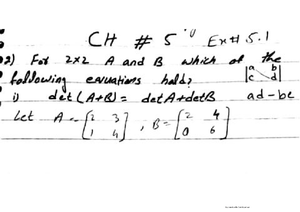 CH # 5 Ex# 5.1
2) For 2x2 A and B which of the
following equations hold?
|a b|
|c d|
i) det (A+B) = det A + det B ad - bc
Let A = [2 3], B = [2 4]
[1 4] [0 6]